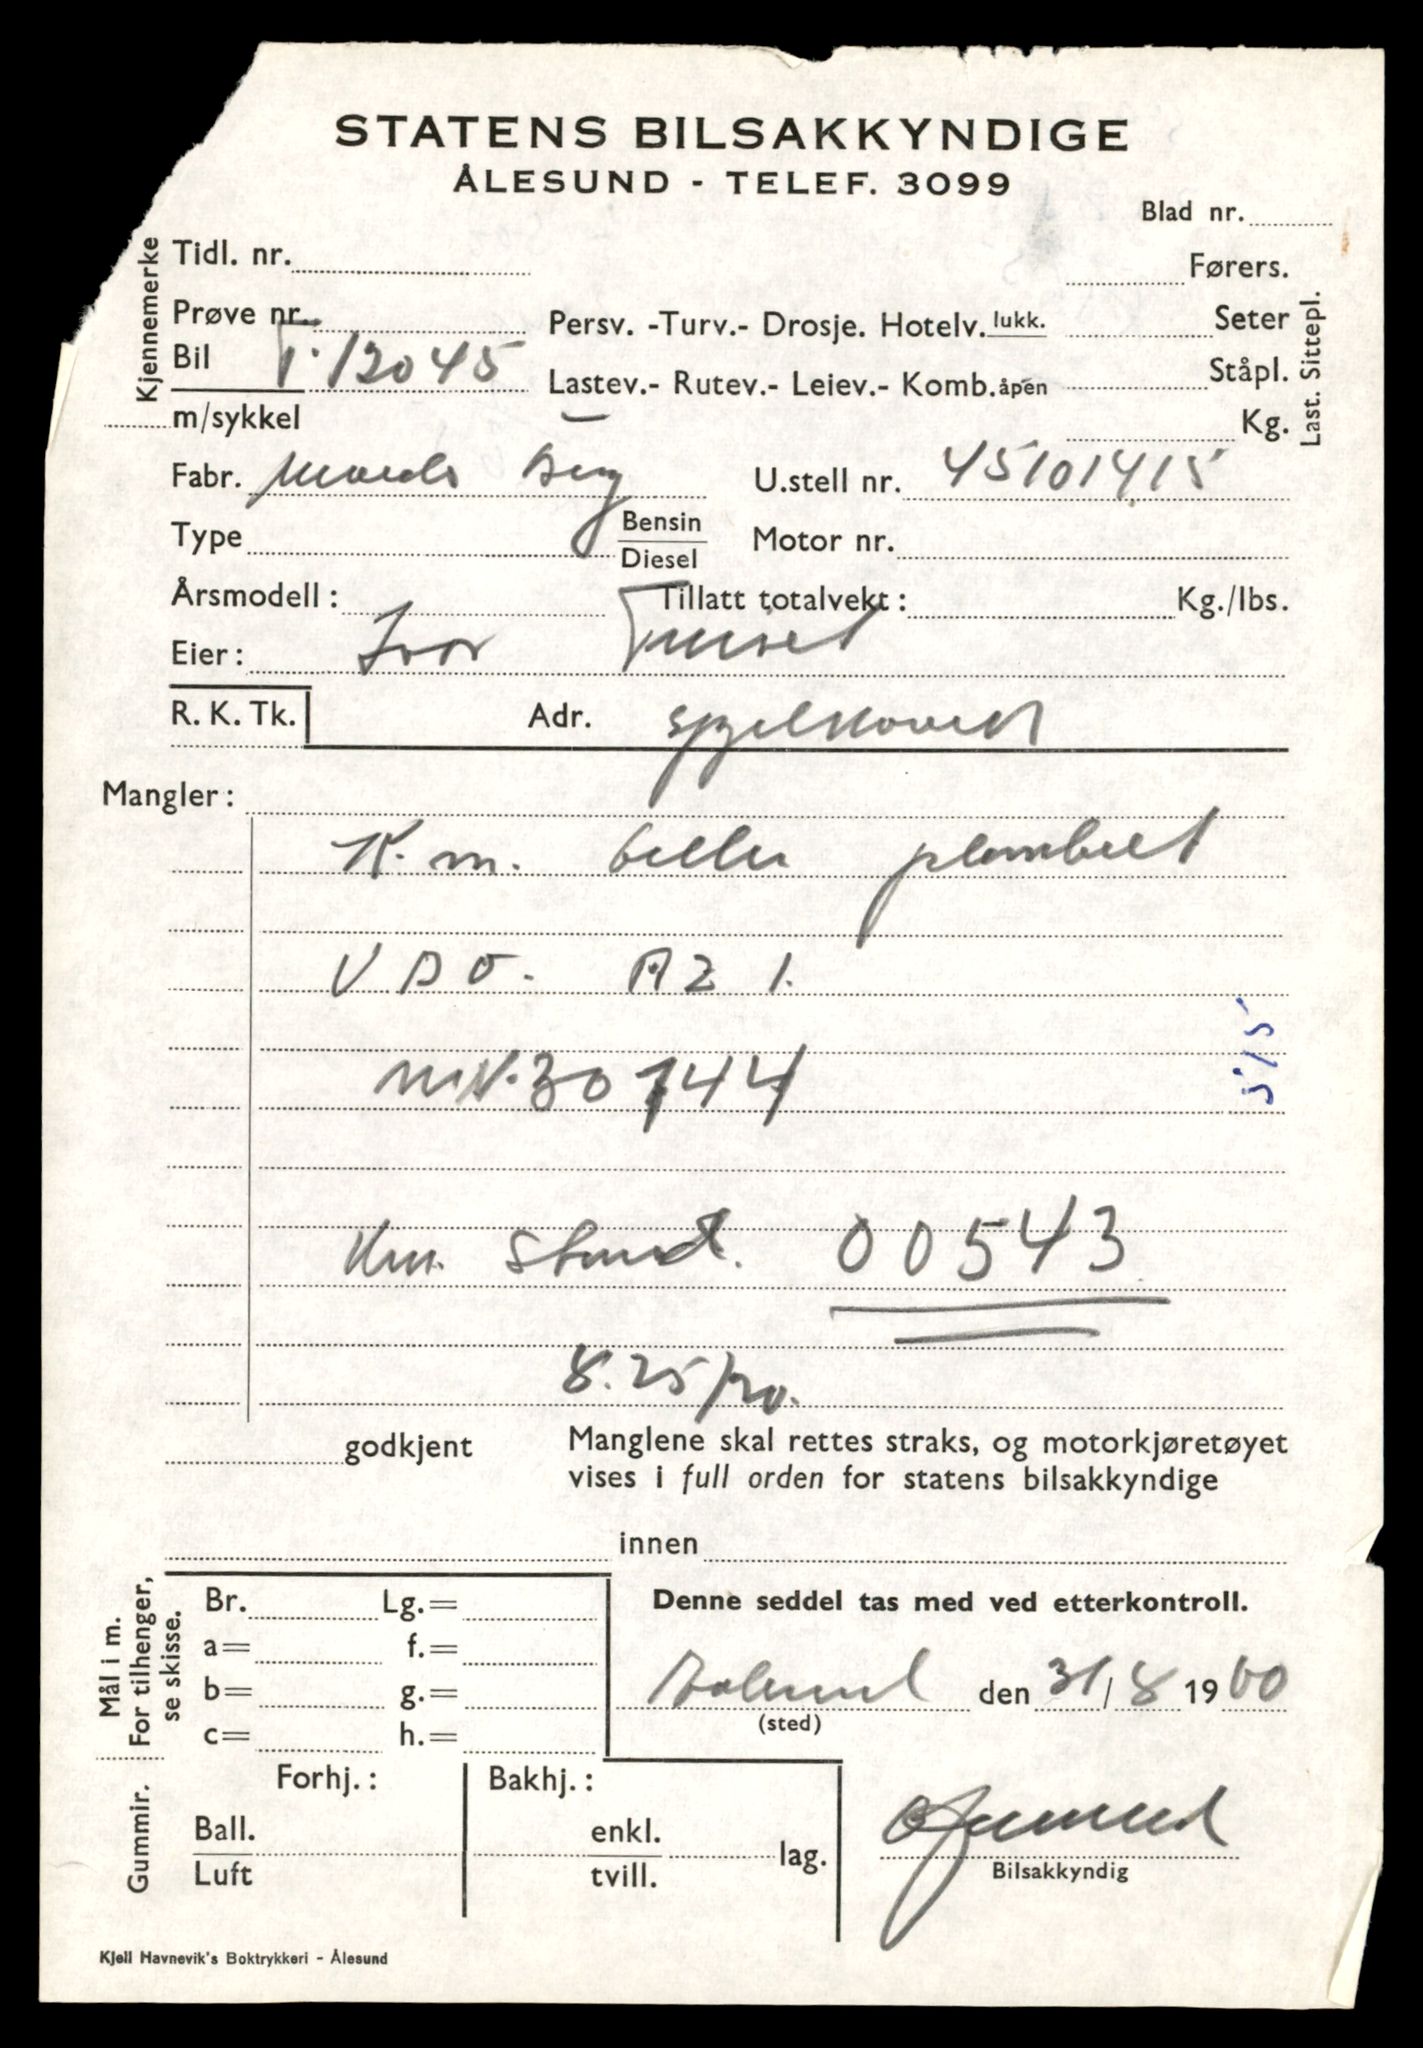 STATENS BILSAKKYNDIGE
ÅLESUND - TELEF. 3099
Blad nr.
Kjennemerke
Tidl. nr.
Førers.
Prøve nr.
Persv. -Turv.- Drosje. Hotelv. lukk.
Seter
Bil T. 12045
Lastev.- Rutev.- Leiev.- Komb. åpen
Ståpl.
m/sykkel
Kg.
Last. Sittepl.
Fabr.
U.stell nr. 45101415
Type
Bensin
Diesel
Motor nr.
Årsmodell :
Tillatt totalvekt : Kg./lbs.
Eier : Ivar
R. K. Tk.
Adr. Spjelkavik
Mangler :
K.m. teller plombert
VDO. A21.
nr. 30744
5/5
Km. Stand. 00543
8.25/20.
godkjent
Manglene skal rettes straks, og motorkjøretøyet
vises i full orden for statens bilsakkyndige
innen
Mål i m.
For tilhenger,
se skisse.
Br. Lg.=
a= f.=
b= g.=
c= h.=
Denne seddel tas med ved etterkontroll.
Ålesund den 31/8 1960
(sted)
Gummir.
Forhj. :
Bakhj. :
Ball.
Luft
enkl.
tvill.
lag.
Bilsakkyndig
Kjell Havnevik's Boktrykkeri - Ålesund